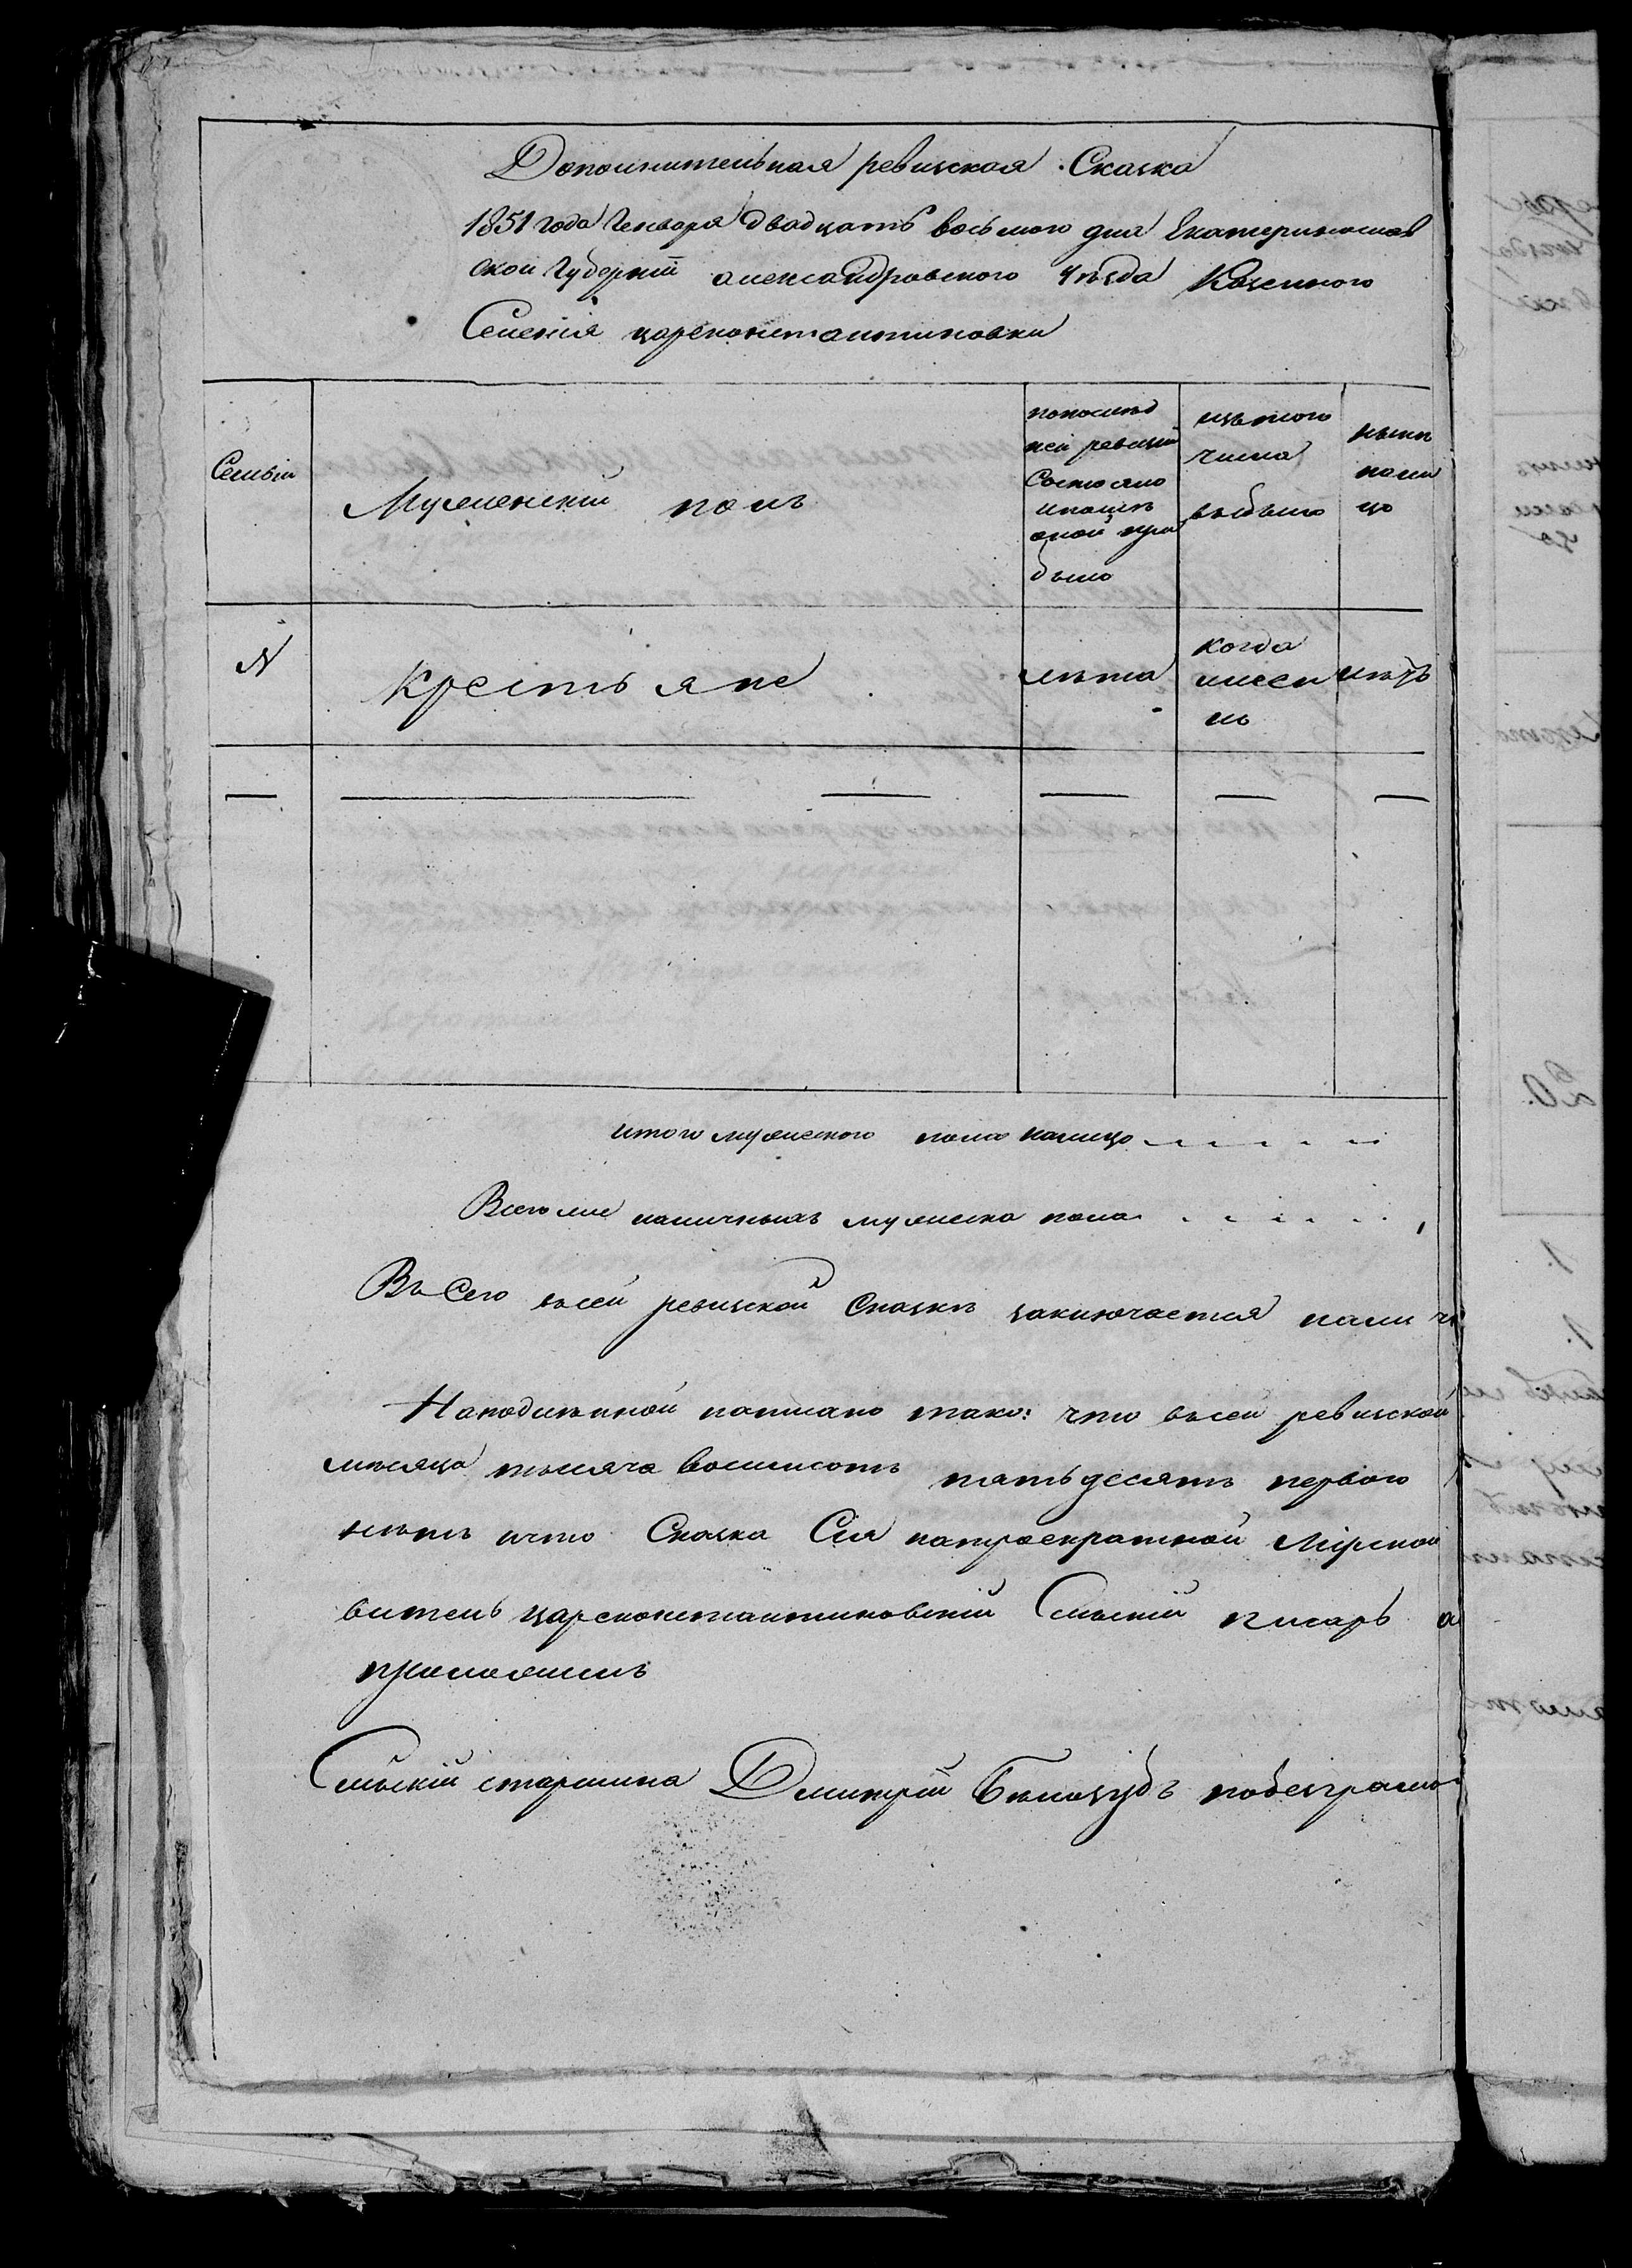 Дополнительная ревизская Сказка
1851 года Генваря двадцать восьмого дня Екатеринослав
ской Губернiи александровского Уезда Казенного
Селенiя цареконстантиновки
Семьiи
Мужескiй полъ
попослѣд
ней ревизiи
Состояло
ипослѣ
оной при
было
изъ того
числа
выбыло
нынѣ
нали
цо
N
Крестьяне
лѣта
когда
имен
но
лѣтъ
итого мужеского пола налицо
Всего же наличныхъ мужеска пола
Въсего въсей ревизской Сказкѣ заключается нали
Наподлинной написано тако: что въсей ревизской
мѣсяца тысяча восемьсотъ пятьдесятъ первого
нѣтъ ичто Сказка Сiя натроекратной Мiрской
витель цареконстантиновскiй Сельскiй писарь а
приложилъ
Сельскiй старшина Дмитрiй Бѣлозубъ побезграмо